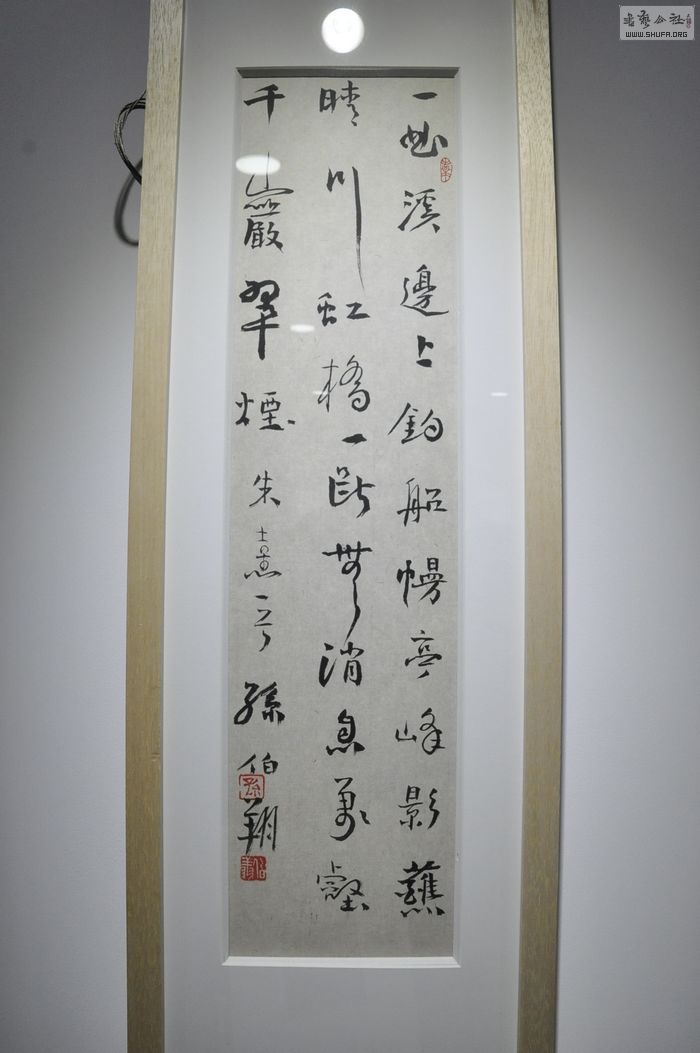 一曲溪邊上釣船幔亭峰影蘸
晴川虹橋一斷無消息萬壑
千巖翠煙 朱熹一首 孫伯翔
書藝公社
WWW.SHUFA.ORG